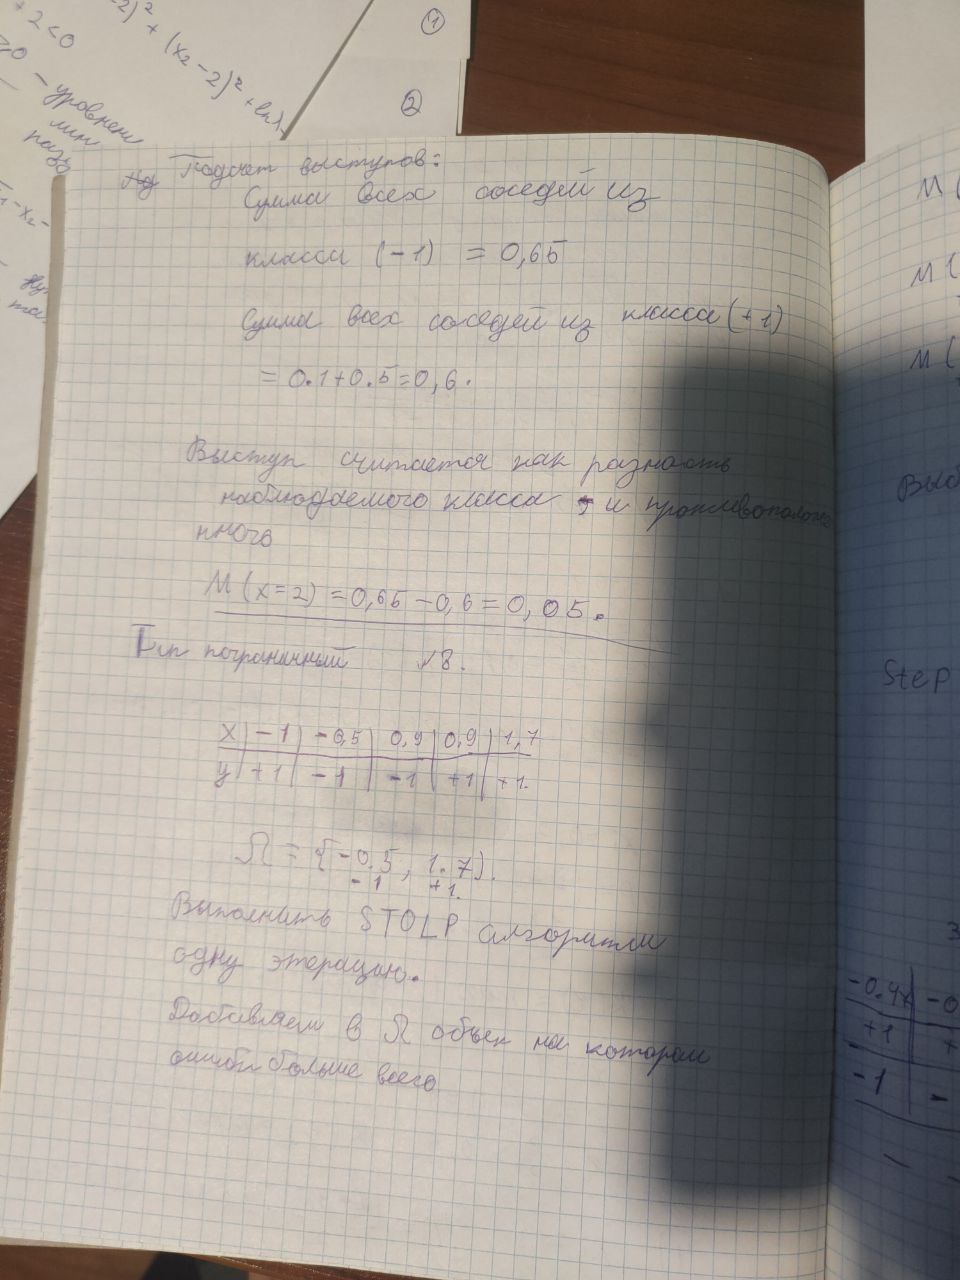 2)² + (x₂ - 2)² + ln λ
+ 2 < 0
- уровнени
лин
①
②
Подсчет выступов:
Сумма всех соседей из
класса (-1) = 0,65
Сумма всех соседей из класса (+1)
= 0.1+0.5=0,6.
Выступ считается как разность
наблюдаемого класса и противополож
нного
M(x=2) = 0,65 - 0,6 = 0,05.
Тип пограничный №8.
x | -1 | -0,5 | 0,9 | 0,9 | 1,7
y | +1 | -1 | -1 | +1 | +1.
Ω = {-0.5, 1.7}.
-1 +1.
Выполнить STOLP алгоритм
одну этерацию.
Добавляем в Ω объек на котором
ошиб больше всего
M(
M(
M(
Выб
Step
+1
-1